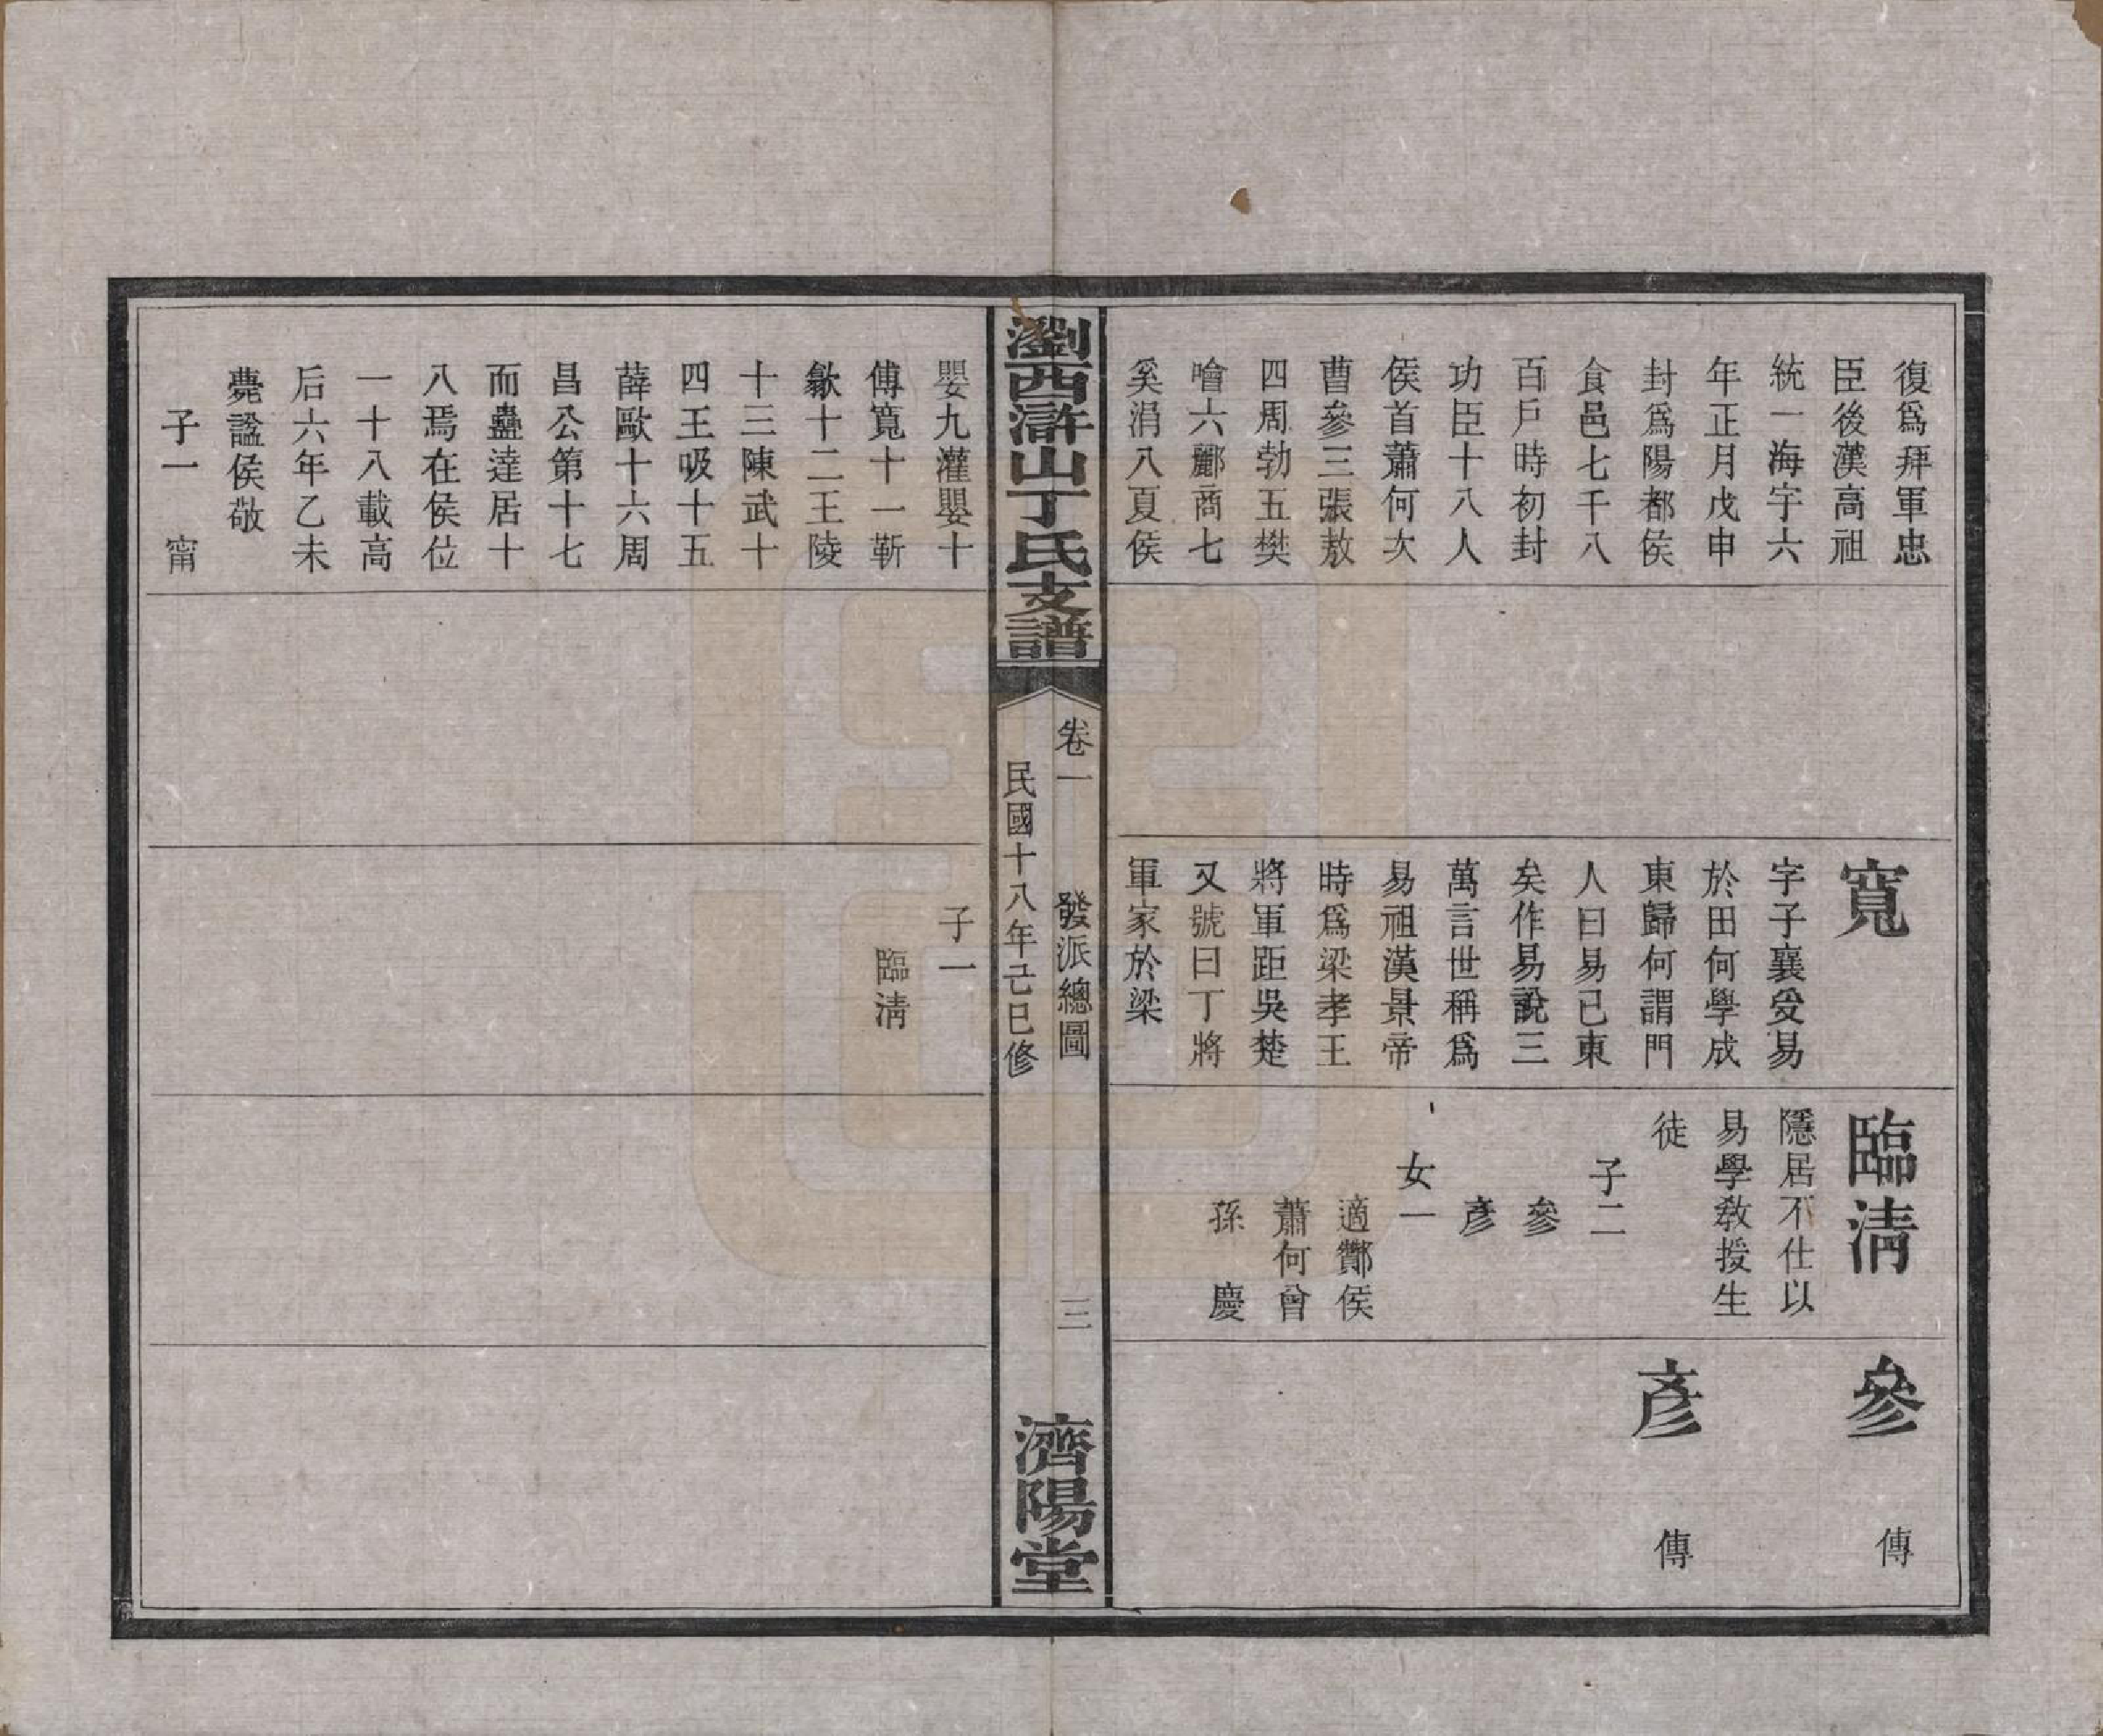 復爲拜軍忠
臣後漢高祖
統一海宇六
年正月戊申
封爲陽都侯
食邑七千八
百戶時初封
功臣十八人
侯首蕭何次
曹參三張敖
四周勃五樊
噲六酈商七
奚涓八夏侯
寬
字子襄受易
於田何學成
東歸何謂門
人曰易已東
矣作易說三
萬言世稱爲
易祖漢景帝
時爲梁孝王
將軍距吳楚
又號曰丁將
軍家於梁
臨清
隱居不仕以
易學教授生
徒
子二
參
彥
女一
適酇侯
蕭何曾
孫 慶
參 傳
彥 傳
瀏西滸山丁氏支譜
卷一 發派總圖 三
民國十八年己巳修
濟陽堂
嬰九灌嬰十
傅寬十一靳
歙十二王陵
十三陳武十
四王吸十五
薛歐十六周
昌公第十七
而蟲達居十
八焉在侯位
一十八載高
后六年乙未
薨謚侯敬
子一 甯
子一
臨清